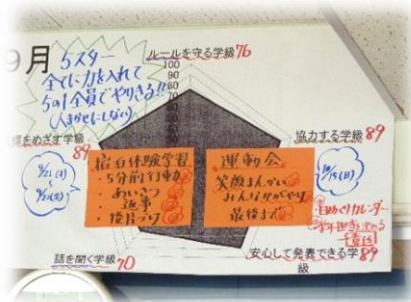 9月
5スター
全てに力を入れて
5の1全員でやりきる!!
(人まかせにしない)
ルールを守る学級 76
100
90
80
70
をめざす学級
89
協力する学級 89
宿泊体験学習
・5分前行動
・あいさつ
・返事
・後片づけ
運動会
笑顔まんかい
みんなけがやり
最後まで
9/21(土)
10/15(日)
・日めくりカレンダー
話を聞く学級 70
安心して発表できる学級 89